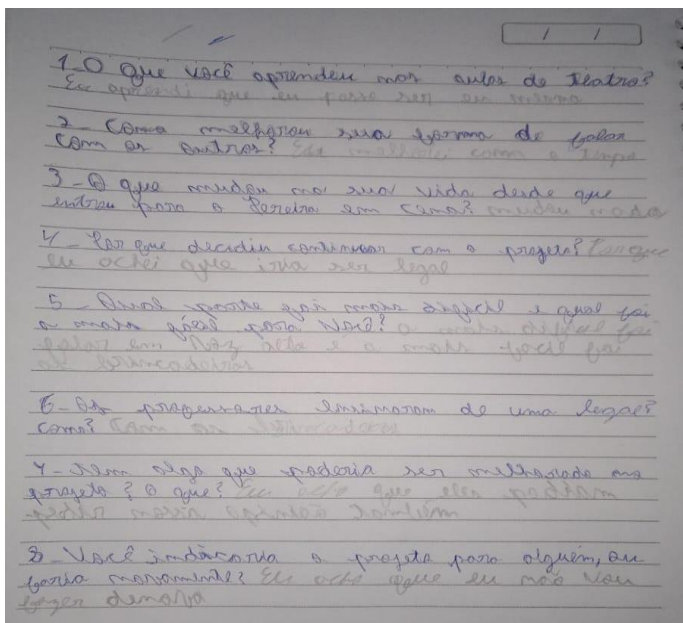 / /
1-O que você aprendeu nas aulas de teatro?
Eu aprendi que eu posso ser eu mesma
2- Como melhorou sua forma de falar
com os outros? Eu melhorei com o tempo
3- O que mudou na sua vida desde que
entrou para o Pereira em Cena? mudou nada
4- Por que decidiu continuar com o projeto? Porque
eu achei que iria ser legal
5- Qual parte foi mais difícil e qual foi
a mais fácil para você? a mais difícil foi
falar em voz alta e a mais facil foi
as brincadeiras
6- Os professores ensinaram de uma legal?
como? Com as brincadeiras
7- Tem algo que poderia ser melhorado no
projeto? O que? Eu acho que eles podiam
opinião também
8- Você indicaria o projeto para alguém, ou
faria novamente? Eu acho que eu não vou
fazer denovo